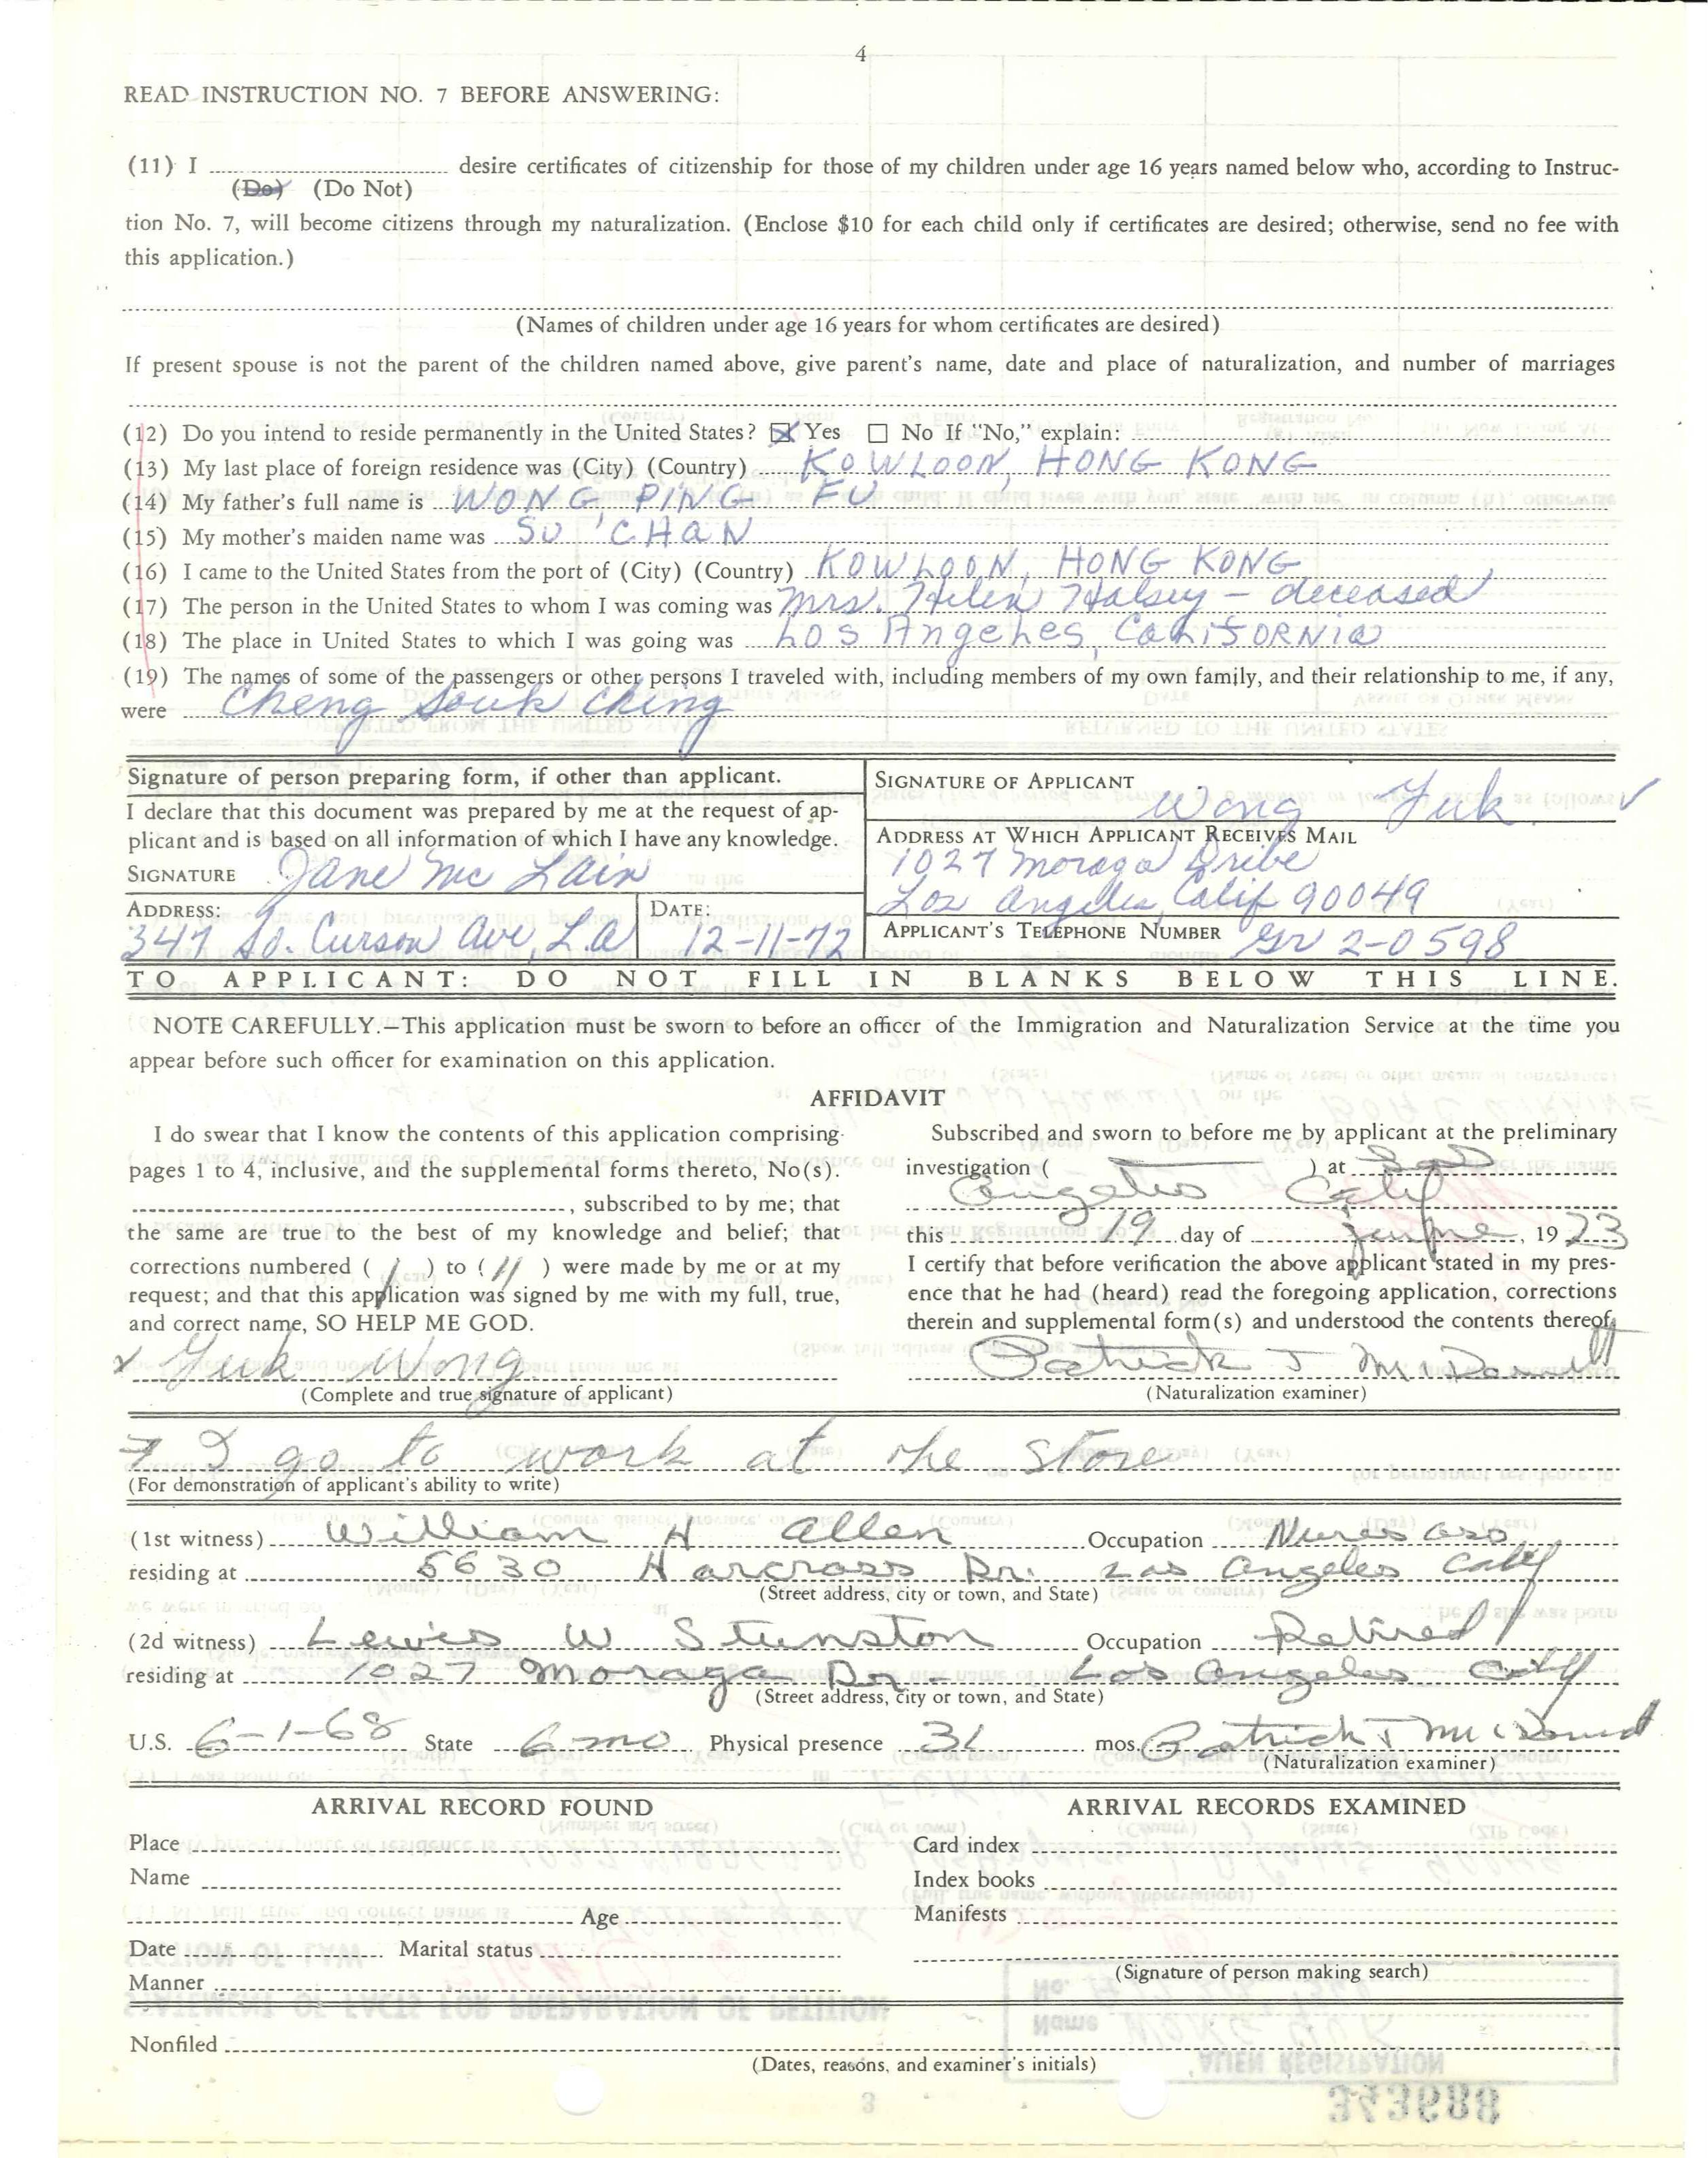 4
READ INSTRUCTION NO. 7 BEFORE ANSWERING:
(11) I ........ desire certificates of citizenship for those of my children under age 16 years named below who, according to Instruc-
(Do) (Do Not)
tion No. 7, will become citizens through my naturalization. (Enclose $10 for each child only if certificates are desired; otherwise, send no fee with
this application.)
(Names of children under age 16 years for whom certificates are desired)
If present spouse is not the parent of the children named above, give parent's name, date and place of naturalization, and number of marriages
(12) Do you intend to reside permanently in the United States? ☒ Yes ☐ No If "No," explain:
(13) My last place of foreign residence was (City) (Country) KOWLOON, HONG KONG
(14) My father's full name is WONG, PING FU
(15) My mother's maiden name was SU 'CHAN
(16) I came to the United States from the port of (City) (Country) KOWLOON, HONG KONG
(17) The person in the United States to whom I was coming was Mrs. Helen Halsey – deceased
(18) The place in United States to which I was going was Los Angeles, CaliFORNia
(19) The names of some of the passengers or other persons I traveled with, including members of my own family, and their relationship to me, if any,
were Cheng Souk Ching
Signature of person preparing form, if other than applicant.
I declare that this document was prepared by me at the request of ap-
plicant and is based on all information of which I have any knowledge.
SIGNATURE Jane Mc Lain
ADDRESS: DATE:
347 So. Curson Ave, L.A 12-11-72
SIGNATURE OF APPLICANT
Wong Yuk
ADDRESS AT WHICH APPLICANT RECEIVES MAIL
1027 Moraga Dribe
Los Angeles, Calif 90049
APPLICANT'S TELEPHONE NUMBER Gr 2-0598
TO APPLICANT: DO NOT FILL IN BLANKS BELOW THIS LINE.
NOTE CAREFULLY.—This application must be sworn to before an officer of the Immigration and Naturalization Service at the time you
appear before such officer for examination on this application.
AFFIDAVIT
I do swear that I know the contents of this application comprising
pages 1 to 4, inclusive, and the supplemental forms thereto, No(s).
, subscribed to by me; that
the same are true to the best of my knowledge and belief; that
corrections numbered ( 1 ) to ( 11 ) were made by me or at my
request; and that this application was signed by me with my full, true,
and correct name, SO HELP ME GOD.
x Yuk Wong
(Complete and true signature of applicant)
Subscribed and sworn to before me by applicant at the preliminary
investigation ( ) at Los
Angeles Calif
this 19 day of June, 19 73
I certify that before verification the above applicant stated in my pres-
ence that he had (heard) read the foregoing application, corrections
therein and supplemental form(s) and understood the contents thereof.
Patrick J
(Naturalization examiner)
I go to work at the store
(For demonstration of applicant's ability to write)
(1st witness) William H Allen Occupation
residing at 5630 Harcross Dr. Los Angeles Calif
(Street address, city or town, and State)
(2d witness) Lewis W Occupation Retired
residing at 1027 Moraga Dr. Los Angeles Calif
(Street address, city or town, and State)
U.S. 6-1-68 State 6 mo Physical presence 31 mos. Patrick J
(Naturalization examiner)
ARRIVAL RECORD FOUND
Place
Name
Age
Date Marital status
Manner
ARRIVAL RECORDS EXAMINED
Card index
Index books
Manifests
(Signature of person making search)
Nonfiled
(Dates, reasons, and examiner's initials)